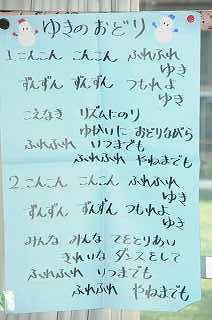 ゆきのおどり
1.こんこん こんこん ふれふれ
ゆき
ずんずん ずんずん つもれよ
ゆき
こえなき リズムにのり
ゆかいに おどりながら
ふれふれ いつまでも
ふれふれ やねまでも
2.こんこん こんこん ふれふれ
ゆき
ずんずん ずんずん つもれよ
ゆき
みんな みんな てをとりあい
きれいな ダンスをして
ふれふれ いつまでも
ふれふれ やねまでも